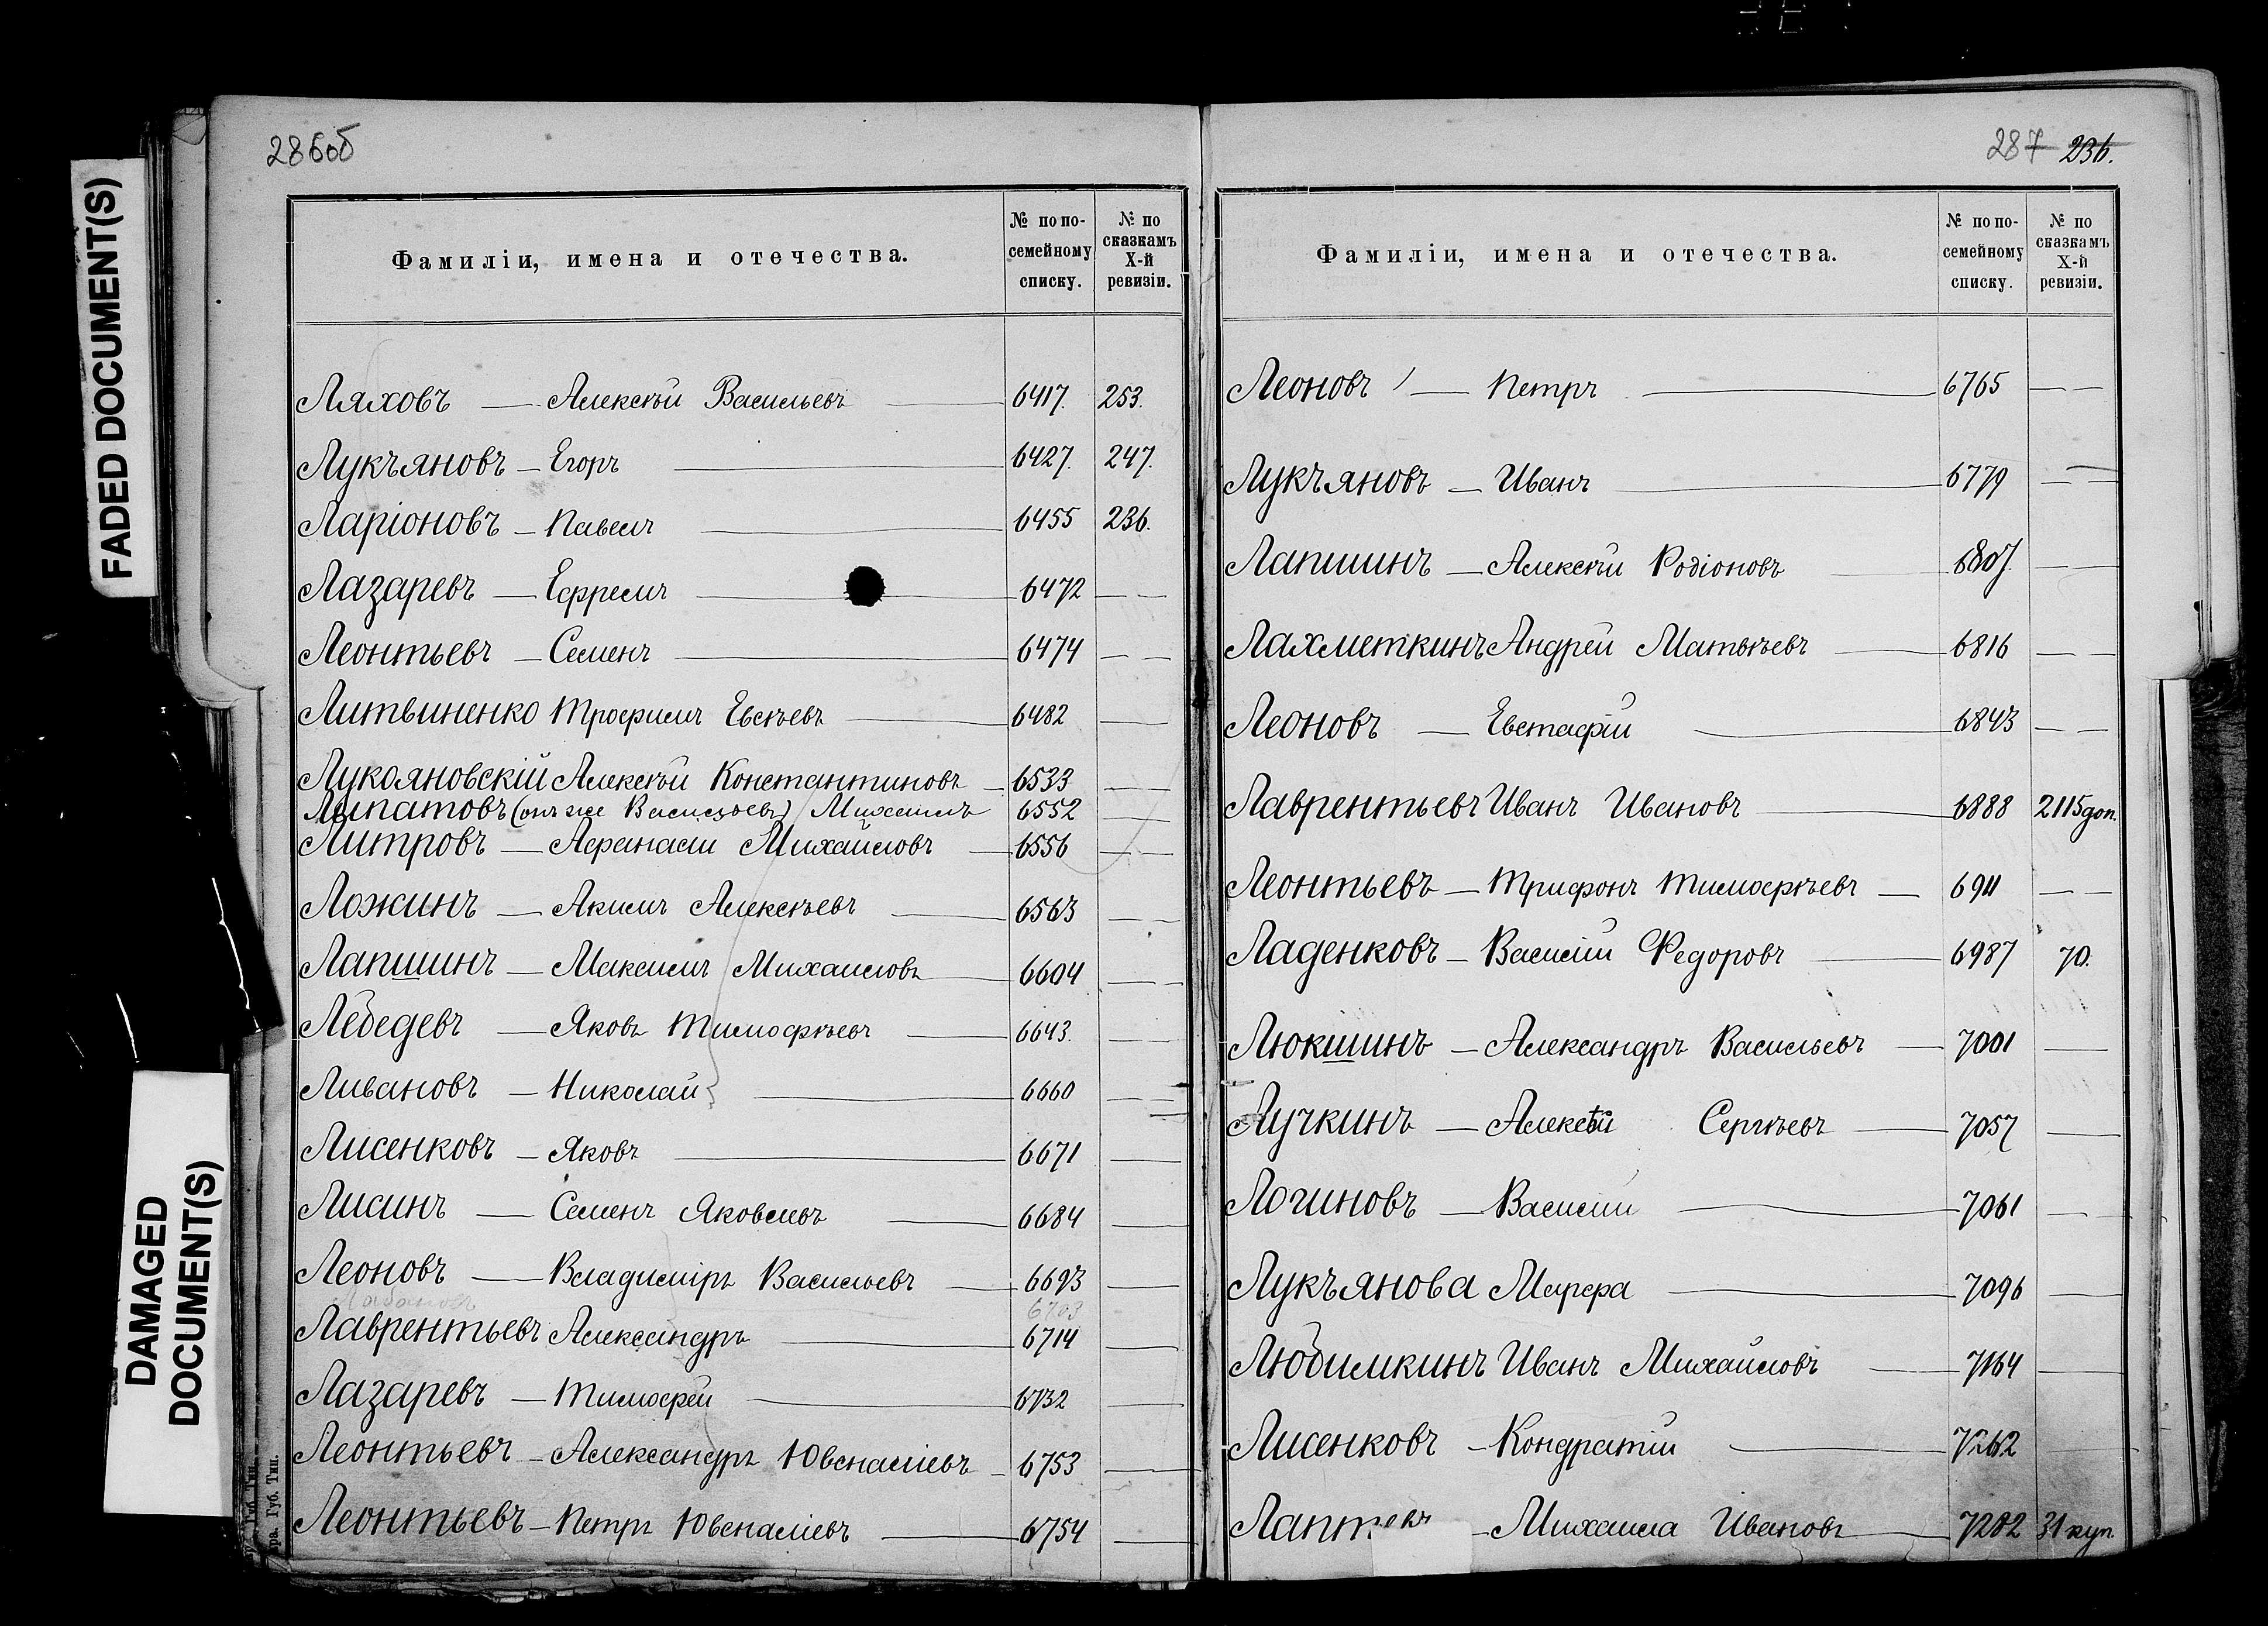 FADED DOCUMENT(S)
DAMAGED
DOCUMENT(S)
286об
Фамиліи, имена и отечества.
№ по по-
семейному
списку.
№ по
сказкамъ
X-й
ревизіи.
Ляховъ — Алексѣй Васильевъ — 6417. 253.
Лукъяновъ — Егоръ — 6427. 247.
Ларіоновъ — Павелъ — 6455 236.
Лазаревъ — Ефремъ — 6472 — —
Леонтьевъ — Семенъ — 6474 — —
Литвиненко Трофимъ Евсѣевъ — 6482 —
Лукояновскій Алексѣй Константиновъ — 6533 — —
Липатовъ (онъ же Васильевъ) Михаилъ 6552 —
Литровъ — Афанасій Михайловъ — 6556 — —
Ложинъ — Акимъ Алексѣевъ — 6563 — —
Лапшинъ — Максимъ Михайловъ — 6604 — —
Лебедевъ — Яковъ Тимофѣевъ — 6643. —
Ливановъ — Николай — 6660 — —
Лисенковъ — Яковъ — 6671 —
Лисинъ — Семенъ Яковлевъ — 6684 —
Леоновъ — Владиміръ Васильевъ — 6693 —
Лабановъ 6703
Лаврентьевъ Александръ — 6714 —
Лазаревъ — Тимофей — 6732 —
Леонтьевъ — Александръ Ювеналіевъ — 6753 —
Леонтьевъ — Петръ Ювеналіевъ — 6754 —
Губ. Тип.
287 236.
Фамиліи, имена и отечества.
№ по по-
семейному
списку.
№ по
сказкамъ
X-й
ревизіи.
Леоновъ — Петръ — 6765 — —
Лукъяновъ — Иванъ — 6779 — —
Лапшинъ — Алексѣй Родіоновъ — 6807. — —
Лахметкинъ Андрей Матвѣевъ — 6816 — —
Леоновъ — Евстафій — 6843 — —
Лаврентьевъ Иванъ Ивановъ — 6888 2115 доп.
Леонтьевъ — Трифонъ Тимофѣевъ — 6911 — —
Ладенковъ — Василій Федоровъ — 6987 70.
Люкшинъ — Александръ Васильевъ — 7001 —
Лучкинъ — Алексѣй Сергѣевъ — 7057 —
Логиновъ — Василій — 7061 —
Лукъянова Марфа — 7096 —
Любимкинъ Иванъ Михайловъ — 7164 —
Лисенковъ — Кондратій — 7262
Лаптевъ — Михаила Ивановъ — 7282 31 куп.